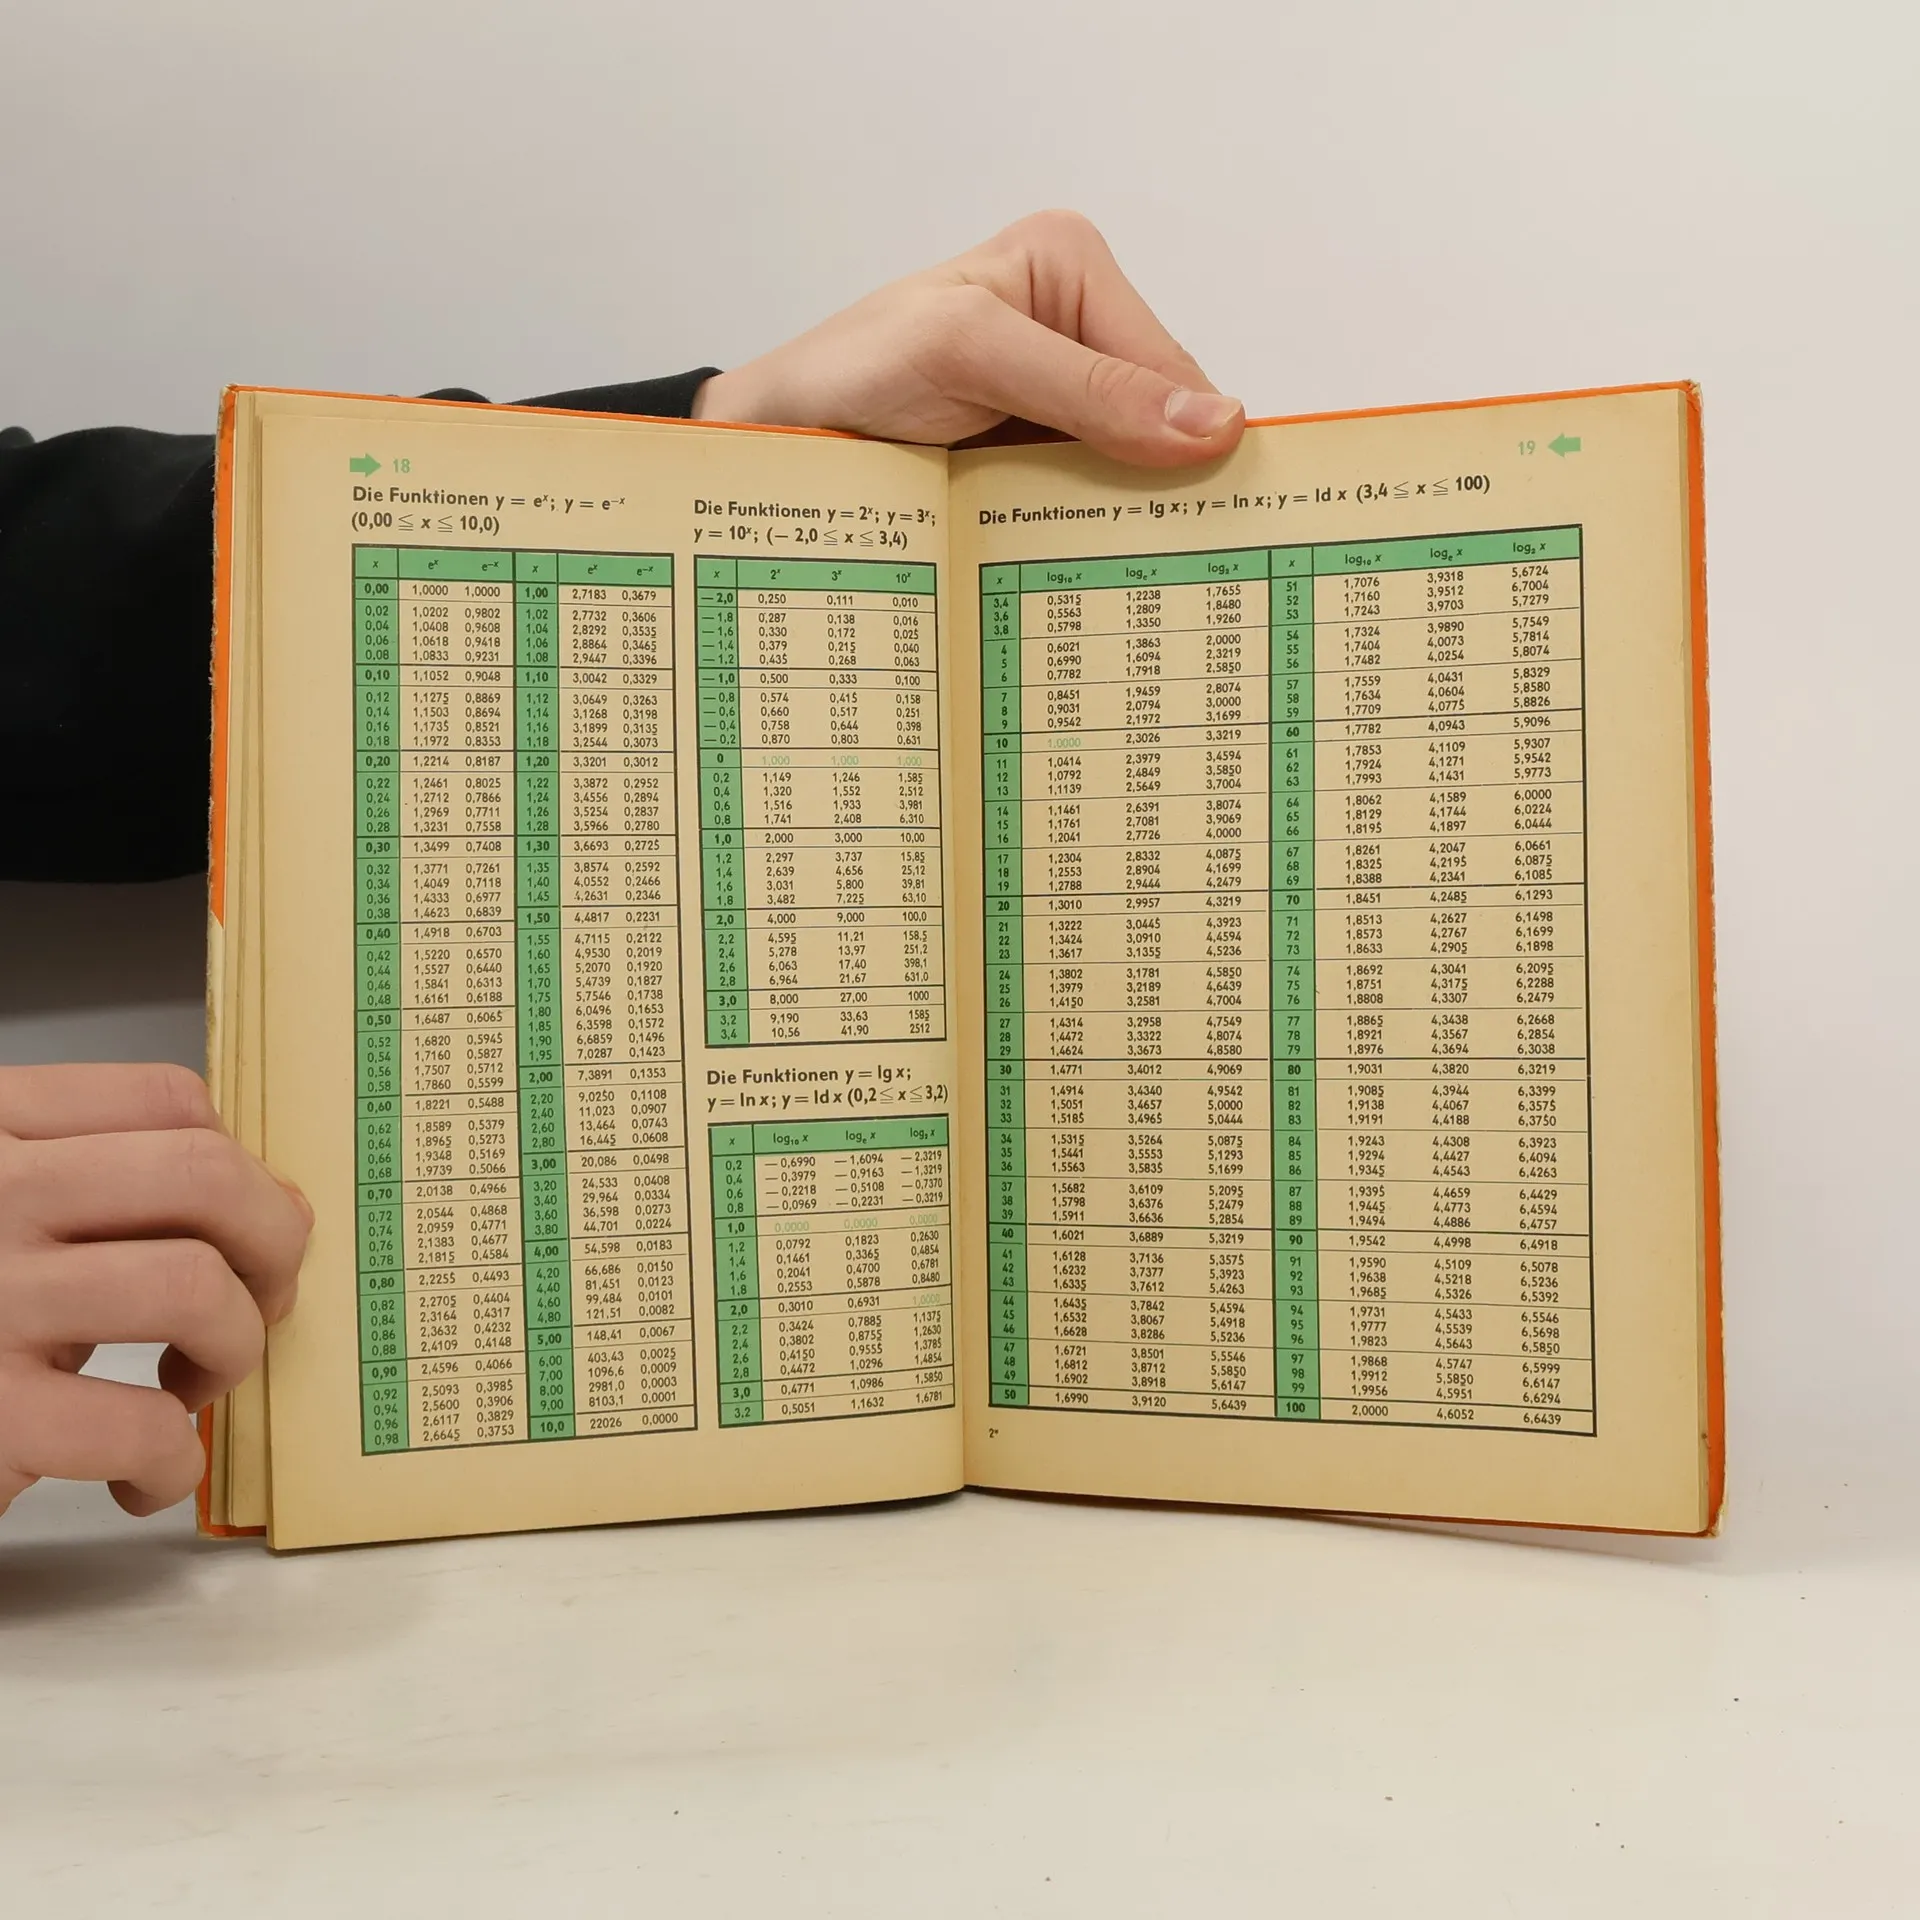 18
Die Funktionen y = eˣ; y = e⁻ˣ
(0,00 ≦ x ≦ 10,0)
x eˣ e⁻ˣ
0,00 1,0000 1,0000
0,02 1,0202 0,9802
0,04 1,0408 0,9608
0,06 1,0618 0,9418
0,08 1,0833 0,9231
0,10 1,1052 0,9048
0,12 1,1275 0,8869
0,14 1,1503 0,8694
0,16 1,1735 0,8521
0,18 1,1972 0,8353
0,20 1,2214 0,8187
0,22 1,2461 0,8025
0,24 1,2712 0,7866
0,26 1,2969 0,7711
0,28 1,3231 0,7558
0,30 1,3499 0,7408
0,32 1,3771 0,7261
0,34 1,4049 0,7118
0,36 1,4333 0,6977
0,38 1,4623 0,6839
0,40 1,4918 0,6703
0,42 1,5220 0,6570
0,44 1,5527 0,6440
0,46 1,5841 0,6313
0,48 1,6161 0,6188
0,50 1,6487 0,6065
0,52 1,6820 0,5945
0,54 1,7160 0,5827
0,56 1,7507 0,5712
0,58 1,7860 0,5599
0,60 1,8221 0,5488
0,62 1,8589 0,5379
0,64 1,8965 0,5273
0,66 1,9348 0,5169
0,68 1,9739 0,5066
0,70 2,0138 0,4966
0,72 2,0544 0,4868
0,74 2,0959 0,4771
0,76 2,1383 0,4677
0,78 2,1815 0,4584
0,80 2,2255 0,4493
0,82 2,2705 0,4404
0,84 2,3164 0,4317
0,86 2,3632 0,4232
0,88 2,4109 0,4148
0,90 2,4596 0,4066
0,92 2,5093 0,3985
0,94 2,5600 0,3906
0,96 2,6117 0,3829
0,98 2,6645 0,3753
x eˣ e⁻ˣ
1,00 2,7183 0,3679
1,02 2,7732 0,3606
1,04 2,8292 0,3535
1,06 2,8864 0,3465
1,08 2,9447 0,3396
1,10 3,0042 0,3329
1,12 3,0649 0,3263
1,14 3,1268 0,3198
1,16 3,1899 0,3135
1,18 3,2544 0,3073
1,20 3,3201 0,3012
1,22 3,3872 0,2952
1,24 3,4556 0,2894
1,26 3,5254 0,2837
1,28 3,5966 0,2780
1,30 3,6693 0,2725
1,35 3,8574 0,2592
1,40 4,0552 0,2466
1,45 4,2631 0,2346
1,50 4,4817 0,2231
1,55 4,7115 0,2122
1,60 4,9530 0,2019
1,65 5,2070 0,1920
1,70 5,4739 0,1827
1,75 5,7546 0,1738
1,80 6,0496 0,1653
1,85 6,3598 0,1572
1,90 6,6859 0,1496
1,95 7,0287 0,1423
2,00 7,3891 0,1353
2,20 9,0250 0,1108
2,40 11,023 0,0907
2,60 13,464 0,0743
2,80 16,445 0,0608
3,00 20,086 0,0498
3,20 24,533 0,0408
3,40 29,964 0,0334
3,60 36,598 0,0273
3,80 44,701 0,0224
4,00 54,598 0,0183
4,20 66,686 0,0150
4,40 81,451 0,0123
4,60 99,484 0,0101
4,80 121,51 0,0082
5,00 148,41 0,0067
6,00 403,43 0,0025
7,00 1096,6 0,0009
8,00 2981,0 0,0003
9,00 8103,1 0,0001
10,0 22026 0,0000
Die Funktionen y = 2ˣ; y = 3ˣ;
y = 10ˣ; (— 2,0 ≦ x ≦ 3,4)
x 2ˣ 3ˣ 10ˣ
— 2,0 0,250 0,111 0,010
— 1,8 0,287 0,138 0,016
— 1,6 0,330 0,172 0,025
— 1,4 0,379 0,215 0,040
— 1,2 0,435 0,268 0,063
— 1,0 0,500 0,333 0,100
— 0,8 0,574 0,415 0,158
— 0,6 0,660 0,517 0,251
— 0,4 0,758 0,644 0,398
— 0,2 0,870 0,803 0,631
0 1,000 1,000 1,000
0,2 1,149 1,246 1,585
0,4 1,320 1,552 2,512
0,6 1,516 1,933 3,981
0,8 1,741 2,408 6,310
1,0 2,000 3,000 10,00
1,2 2,297 3,737 15,85
1,4 2,639 4,656 25,12
1,6 3,031 5,800 39,81
1,8 3,482 7,225 63,10
2,0 4,000 9,000 100,0
2,2 4,595 11,21 158,5
2,4 5,278 13,97 251,2
2,6 6,063 17,40 398,1
2,8 6,964 21,67 631,0
3,0 8,000 27,00 1000
3,2 9,190 33,63 1585
3,4 10,56 41,90 2512
Die Funktionen y = lg x;
y = ln x; y = ld x (0,2 ≦ x ≦ 3,2)
x log₁₀ x logₑ x log₂ x
0,2 — 0,6990 — 1,6094 — 2,3219
0,4 — 0,3979 — 0,9163 — 1,3219
0,6 — 0,2218 — 0,5108 — 0,7370
0,8 — 0,0969 — 0,2231 — 0,3219
1,0 0,0000 0,0000 0,0000
1,2 0,0792 0,1823 0,2630
1,4 0,1461 0,3365 0,4854
1,6 0,2041 0,4700 0,6781
1,8 0,2553 0,5878 0,8480
2,0 0,3010 0,6931 1,0000
2,2 0,3424 0,7885 1,1375
2,4 0,3802 0,8755 1,2630
2,6 0,4150 0,9555 1,3785
2,8 0,4472 1,0296 1,4854
3,0 0,4771 1,0986 1,5850
3,2 0,5051 1,1632 1,6781
19
Die Funktionen y = lg x; y = ln x; y = ld x (3,4 ≦ x ≦ 100)
x log₁₀ x logₑ x log₂ x
3,4 0,5315 1,2238 1,7655
3,6 0,5563 1,2809 1,8480
3,8 0,5798 1,3350 1,9260
4 0,6021 1,3863 2,0000
5 0,6990 1,6094 2,3219
6 0,7782 1,7918 2,5850
7 0,8451 1,9459 2,8074
8 0,9031 2,0794 3,0000
9 0,9542 2,1972 3,1699
10 1,0000 2,3026 3,3219
11 1,0414 2,3979 3,4594
12 1,0792 2,4849 3,5850
13 1,1139 2,5649 3,7004
14 1,1461 2,6391 3,8074
15 1,1761 2,7081 3,9069
16 1,2041 2,7726 4,0000
17 1,2304 2,8332 4,0875
18 1,2553 2,8904 4,1699
19 1,2788 2,9444 4,2479
20 1,3010 2,9957 4,3219
21 1,3222 3,0445 4,3923
22 1,3424 3,0910 4,4594
23 1,3617 3,1355 4,5236
24 1,3802 3,1781 4,5850
25 1,3979 3,2189 4,6439
26 1,4150 3,2581 4,7004
27 1,4314 3,2958 4,7549
28 1,4472 3,3322 4,8074
29 1,4624 3,3673 4,8580
30 1,4771 3,4012 4,9069
31 1,4914 3,4340 4,9542
32 1,5051 3,4657 5,0000
33 1,5185 3,4965 5,0444
34 1,5315 3,5264 5,0875
35 1,5441 3,5553 5,1293
36 1,5563 3,5835 5,1699
37 1,5682 3,6109 5,2095
38 1,5798 3,6376 5,2479
39 1,5911 3,6636 5,2854
40 1,6021 3,6889 5,3219
41 1,6128 3,7136 5,3575
42 1,6232 3,7377 5,3923
43 1,6335 3,7612 5,4263
44 1,6435 3,7842 5,4594
45 1,6532 3,8067 5,4918
46 1,6628 3,8286 5,5236
47 1,6721 3,8501 5,5546
48 1,6812 3,8712 5,5850
49 1,6902 3,8918 5,6147
50 1,6990 3,9120 5,6439
x log₁₀ x logₑ x log₂ x
51 1,7076 3,9318 5,6724
52 1,7160 3,9512 6,7004
53 1,7243 3,9703 5,7279
54 1,7324 3,9890 5,7549
55 1,7404 4,0073 5,7814
56 1,7482 4,0254 5,8074
57 1,7559 4,0431 5,8329
58 1,7634 4,0604 5,8580
59 1,7709 4,0775 5,8826
60 1,7782 4,0943 5,9096
61 1,7853 4,1109 5,9307
62 1,7924 4,1271 5,9542
63 1,7993 4,1431 5,9773
64 1,8062 4,1589 6,0000
65 1,8129 4,1744 6,0224
66 1,8195 4,1897 6,0444
67 1,8261 4,2047 6,0661
68 1,8325 4,2195 6,0875
69 1,8388 4,2341 6,1085
70 1,8451 4,2485 6,1293
71 1,8513 4,2627 6,1498
72 1,8573 4,2767 6,1699
73 1,8633 4,2905 6,1898
74 1,8692 4,3041 6,2095
75 1,8751 4,3175 6,2288
76 1,8808 4,3307 6,2479
77 1,8865 4,3438 6,2668
78 1,8921 4,3567 6,2854
79 1,8976 4,3694 6,3038
80 1,9031 4,3820 6,3219
81 1,9085 4,3944 6,3399
82 1,9138 4,4067 6,3575
83 1,9191 4,4188 6,3750
84 1,9243 4,4308 6,3923
85 1,9294 4,4427 6,4094
86 1,9345 4,4543 6,4263
87 1,9395 4,4659 6,4429
88 1,9445 4,4773 6,4594
89 1,9494 4,4886 6,4757
90 1,9542 4,4998 6,4918
91 1,9590 4,5109 6,5078
92 1,9638 4,5218 6,5236
93 1,9685 4,5326 6,5392
94 1,9731 4,5433 6,5546
95 1,9777 4,5539 6,5698
96 1,9823 4,5643 6,5850
97 1,9868 4,5747 6,5999
98 1,9912 5,5850 6,6147
99 1,9956 4,5951 6,6294
100 2,0000 4,6052 6,6439
2*